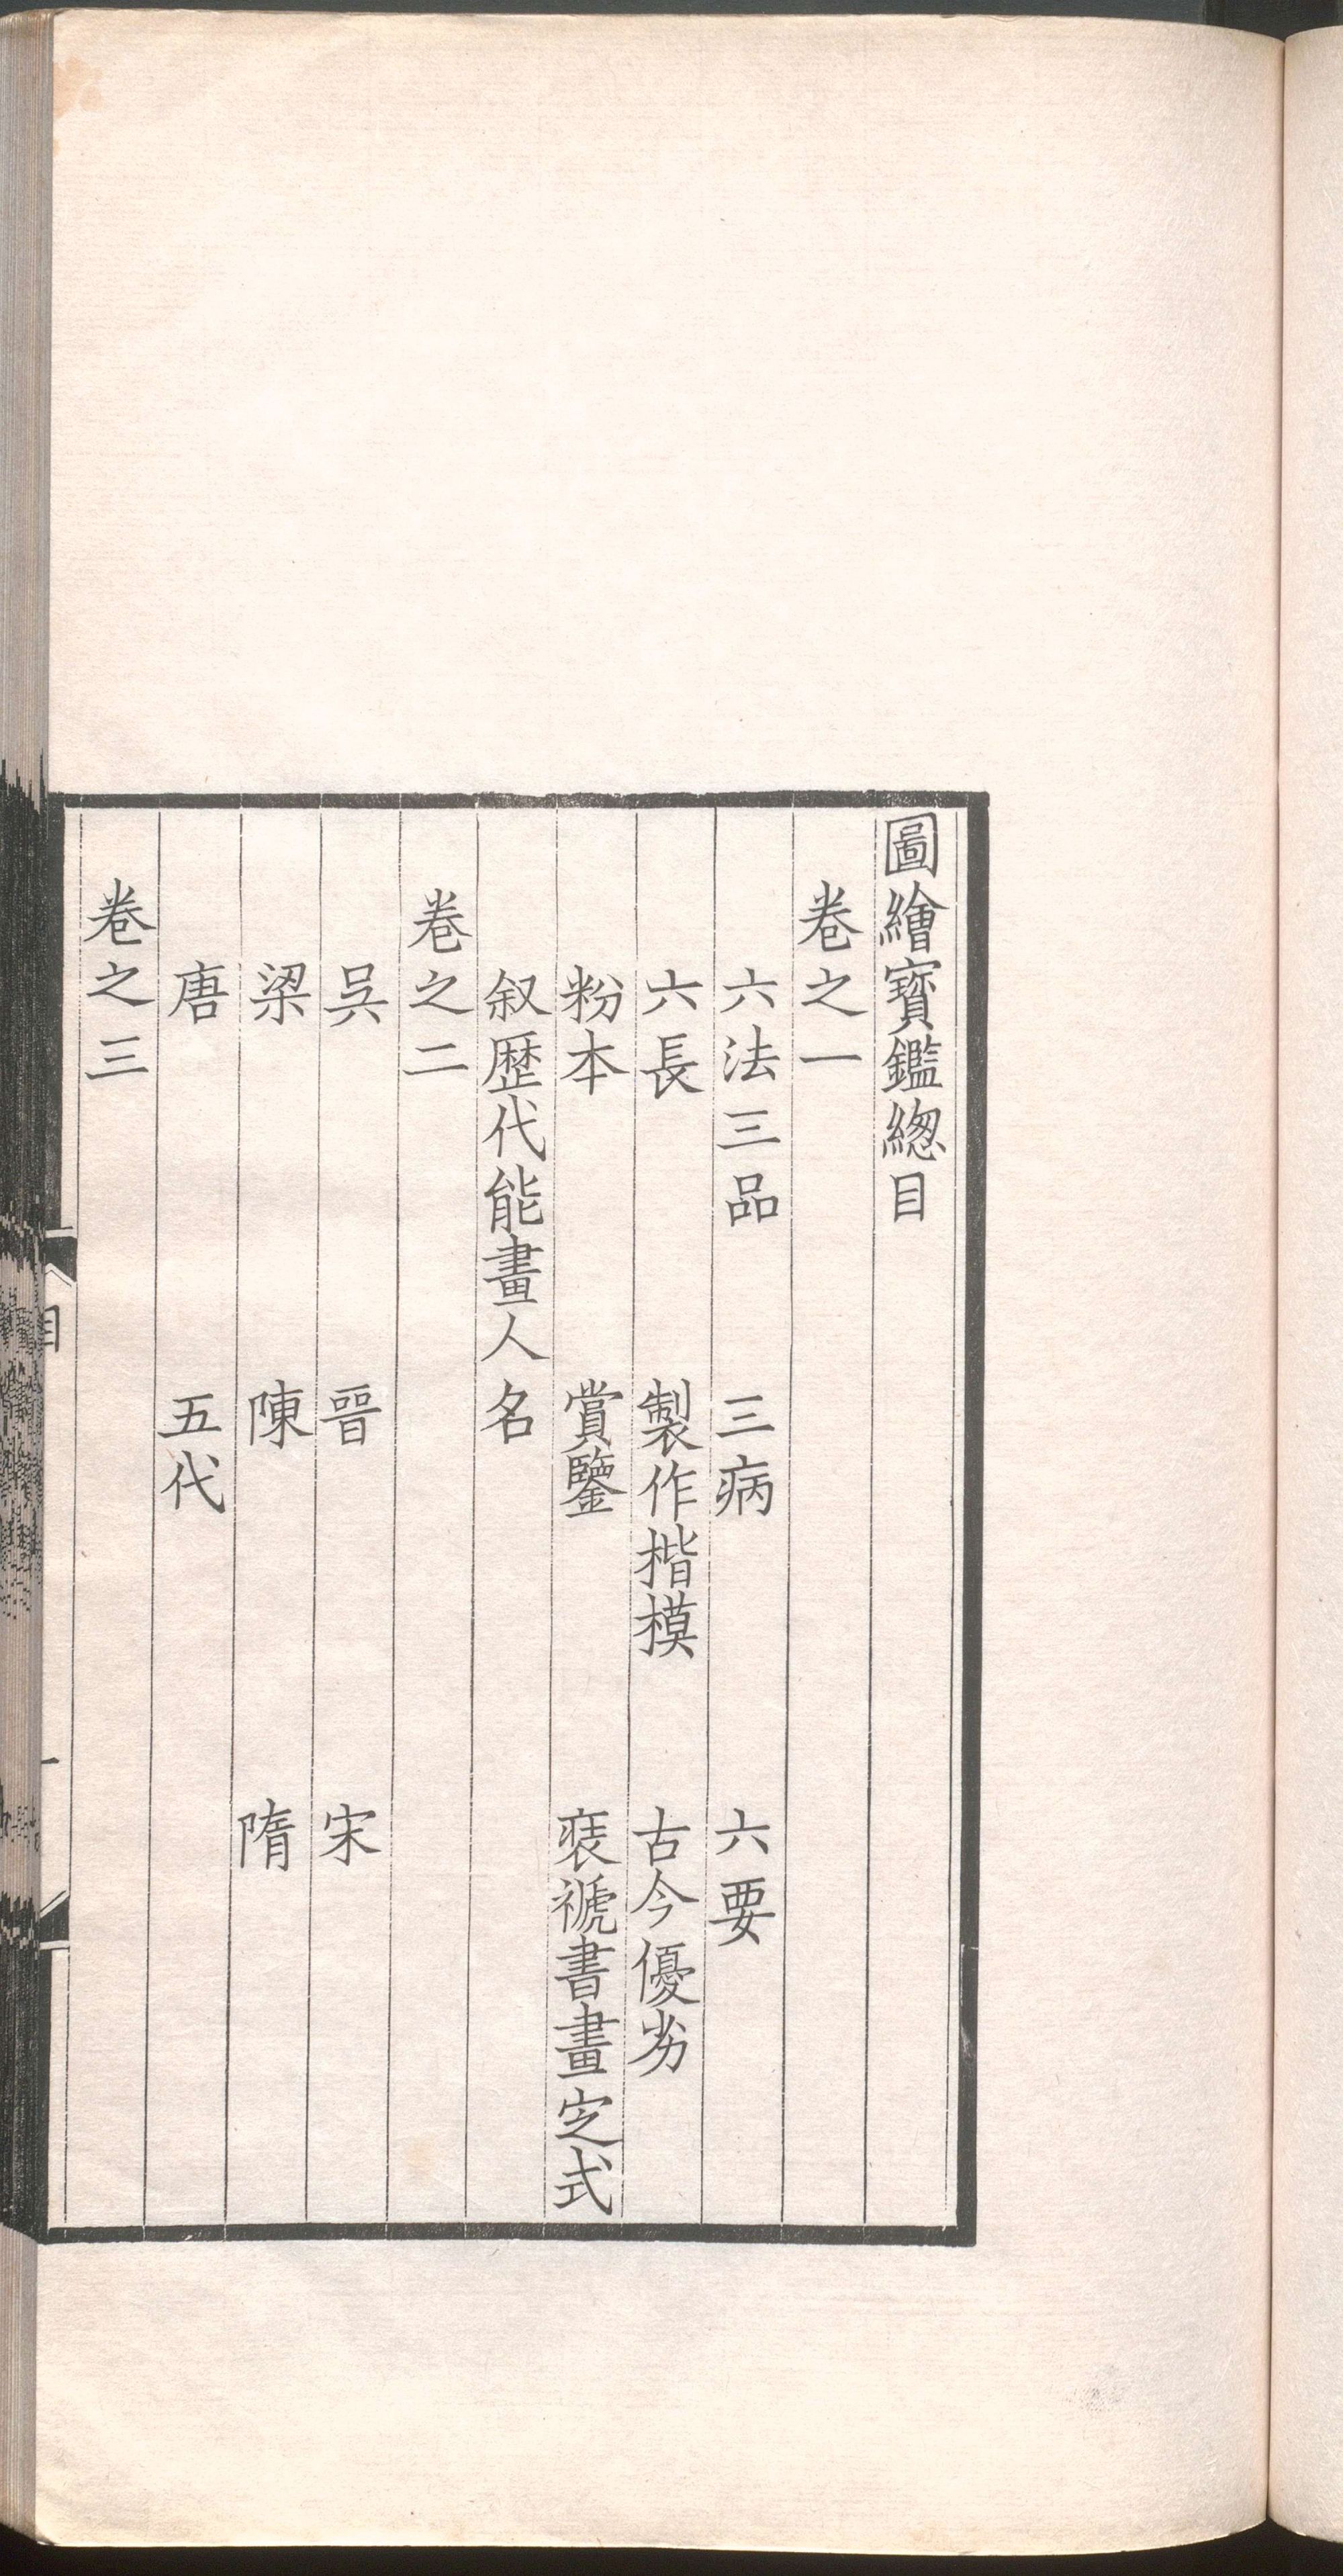 圖繪寳鑑緫目
卷之一
六法三品　三病　六要
六長　製作楷模　古今優劣
粉本　賞鑒　裱褫書畫定式
叙歷代能畫人名
卷之二
吳　晉　宋
梁　陳　隋
唐　五代
卷之三
目
一